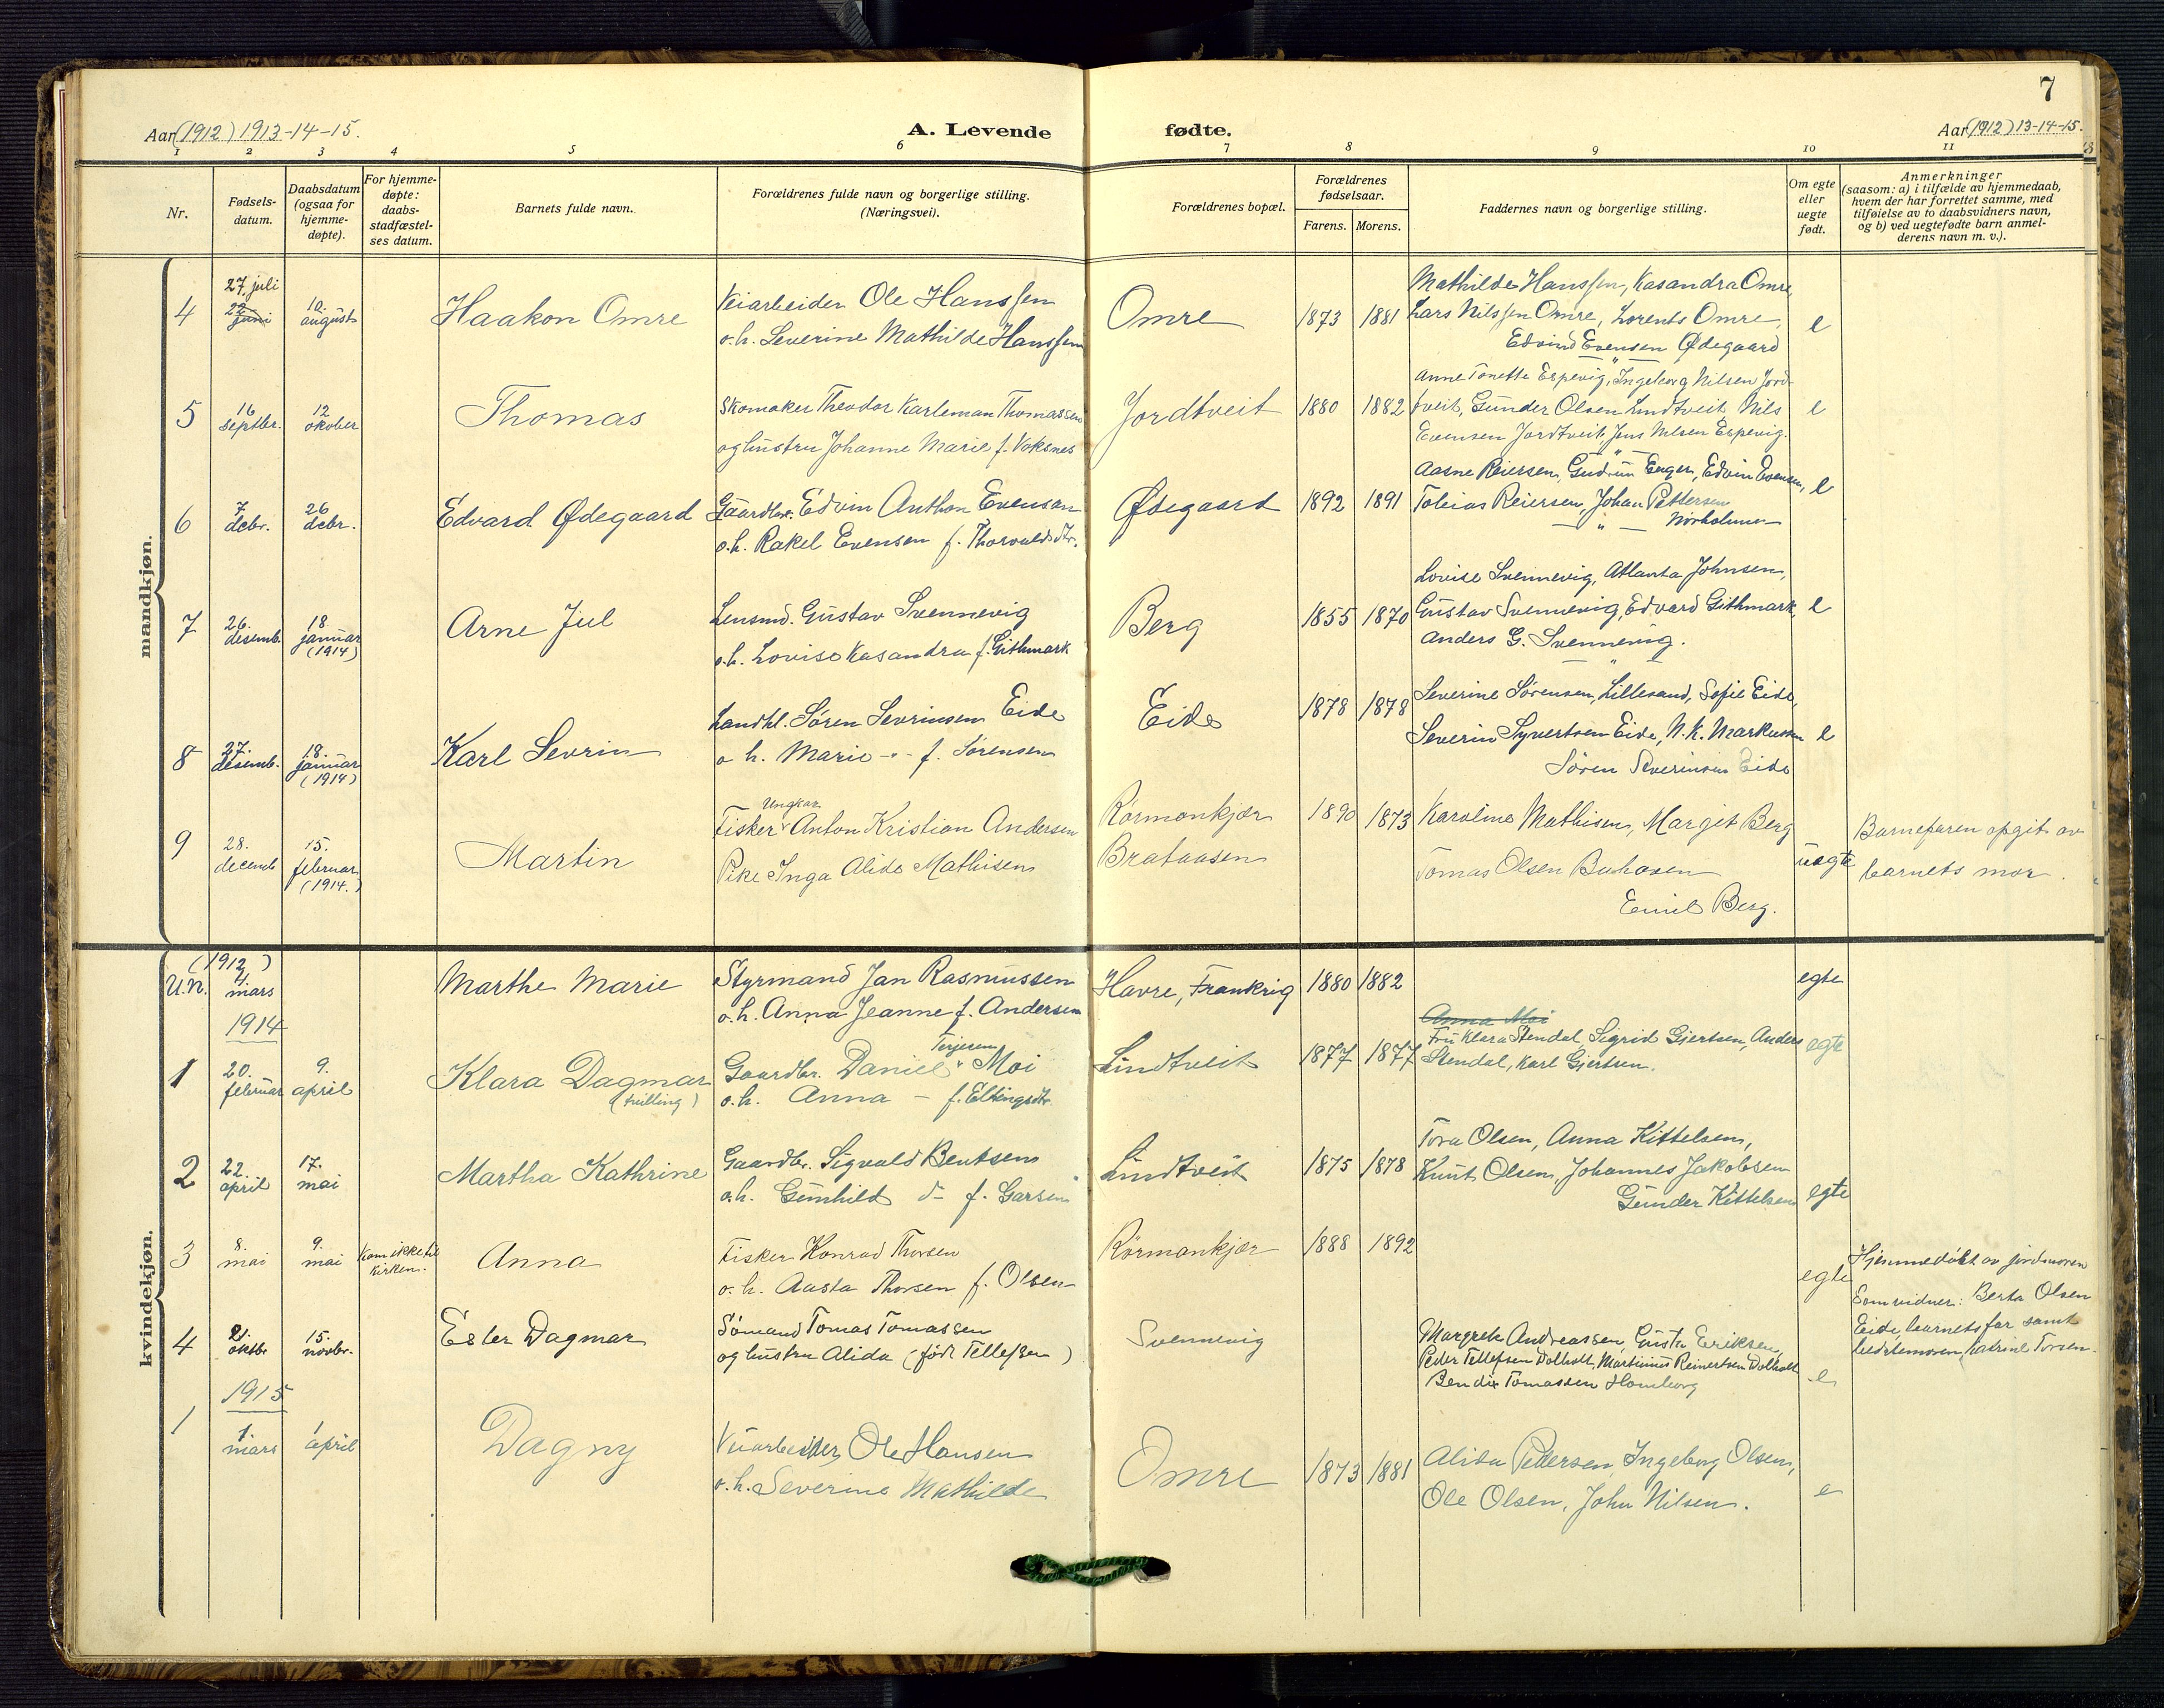 7
Aar (1912) 1913-14-15.
A. Levende fødte.
Aar (1912) 13-14-15.
1 2 3 4 5 6 7 8 9 10 11
Nr.
Fødsels-
datum.
Daabsdatum
(ogsaa for
hjemme-
døpte).
For hjemme-
døpte:
daabs-
stadfæstel-
ses datum.
Barnets fulde navn.
Forældrenes fulde navn og borgerlige stilling.
(Næringsvei).
Forældrenes bopæl.
Forældrenes
fødselsaar.
Farens. Morens.
Faddernes navn og borgerlige stilling.
Om egte
eller
uegte
født.
Anmerkninger
(saasom: a) i tilfælde av hjemmedaab,
hvem der har forrettet samme, med
tilføielse av to daabsvidners navn,
og b) ved uegtefødte barn anmel-
derens navn m. v.).
mandkjøn.
4
27. juli
22 juni
10. august
Haakon Omre
Veiarbeider Ole Hanssen
o. h. Severine Mathilde Hanssen
Omre
1873 1881
Mathilde Hanssen, Kasandra Omre,
Lars Nilssen Omre, Lorents Omre,
Edvind Evensen Ødegaard
e
5
16 septbr.
12 oktober
Thomas
Skomaker Theodor Karleman Thomassen
og hustru Johanne Marie f. Voksnes
Jordtveit
1880 1882
Anne Tonette Espevig, Ingeborg Nilsen Jord-
tveit, Gunder Olsen Lindtveit, Nils
Evensen Jordtveit, Jens Nilsen Espevig.
e
6
7. debr.
26 debr.
Edvard Ødegaard
Gaardbr. Edvin Anthon Evensen
o. h. Rakel Evensen f. Thorvaldsdtr.
Ødegaard
1892 1891
Aasne Reiersen, Gudrun Enger, Edvin Evensen,
Tobias Reiersen, Johan Pettersen
— " — Nörholmen
e
7
26. desemb.
18 januar (1914)
Arne Jul
Lensmd. Gustav Svennevig
o. h. Lovise Kasandra f. Githmark
Berg
1855 1870
Lovise Svennevig, Atlanta Johnsen,
Gustav Svennevig, Edvard Githmark,
Anders G. Svennevig.
e
8
27. desemb.
18. januar (1914)
Karl Sevrin
Landhl. Søren Sevrinsen Eide
o h. Marie -"- f. Sørensen
Eide
1878 1878
Severine Sørensen, Lillesand, Sofie Eide,
Severin Syvertsen Eide, N. K. Markussen
Søren Severinsen Eide
e
9
28. decemb
15. februar (1914.)
Martin
Ungkar
Fisker Anton Kristian Andersen
Pike Inga Alide Mathisen
Rörmonkjær
Brataasen
1890 1873
Karoline Mathisen, Margit Berg
Tomas Olsen Buhaven
Emil Berg.
uegte
Barnefaren opgit av
barnets mor.
kvindekjøn.
(1912)
U.N.
4 mars
Marthe Marie
Styrmand Jan Rasmussen
o. h. Anna Jeanne f. Andersen
Havre, Frankrig
1880 1882
egte
1914
1
20. februar
9. april
Klara Dagmar
(tvilling)
Terjesen
Gaardbr. Daniel Moi
o. h. Anna — f. Ellingsdtr.
Lindtveit
1877 1877
Anna Moi
Fru Klara Stendal, Sigrid Gjertsen, Anders
Stendal, Karl Gjertsen.
egte
2
22. april
17. mai
Martha Kathrine
Gaardbr. Sigvald Bentsen
o. h. Gunhild do f. Garsen
Lindtveit
1875 1878
Tora Olsen, Anna Kittelsen,
Knut Olsen, Johannes Jakobsen
Gunder Kittelsen
egte
3
8. mai
9. mai
Kom ikke til
kirken.
Anna
Fisker Konrad Thorsen
o. h. Aasta Thorsen f. Olsen
Rörmonkjær
1888 1892
egte
Hjemmedöbt av jordmoren
Som vidner: Berta Olsen
Eide, barnets far samt
bedstemoren, Katrine Torsen.
4
21. oktbr
15. novbr.
Ester Dagmar
Sömand Tomas Tomassen
og hustru Alida (födt Tellefsen)
Svennevig
Margrete Andreassen, Gusta Eriksen,
Peder Tellefsen Dolholt, Martinius Reinertsen Dolholt
Bendix Tomassen Homborg
e
1915
1
1. mars
1 april
Dagny
Veiarbeider Ole Hansen
o. h. Severine Mathilde
Omre
1873 1881
Alida Pettersen, Ingeborg Olsen,
Ole Olsen, John Nilsen.
e